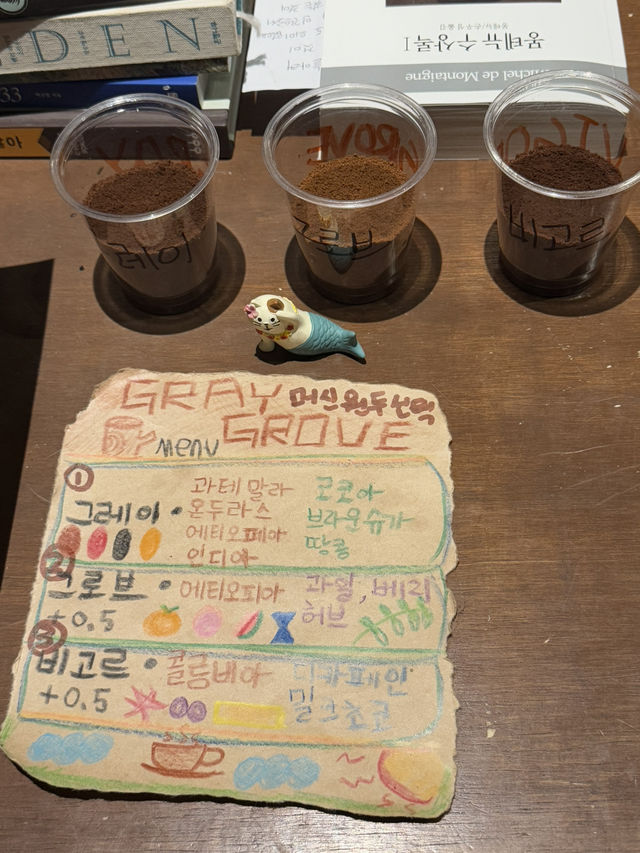 DEN
33
몽테뉴 수상록 I
몽테뉴 지음
Michel de Montaigne
GRAY
GROVE
VIGOR
그레이
그로브
비고르
GRAY 머신 원두 선택
menu GROVE
① 그레이 • 과테말라 코코아
온두라스 브라운슈가
에티오피아 땅콩
인디아
② 그로브 • 에티오피아 과일, 베리
+0.5 허브
③ 비고르 • 콜롬비아 디카페인
+0.5 밀크초코